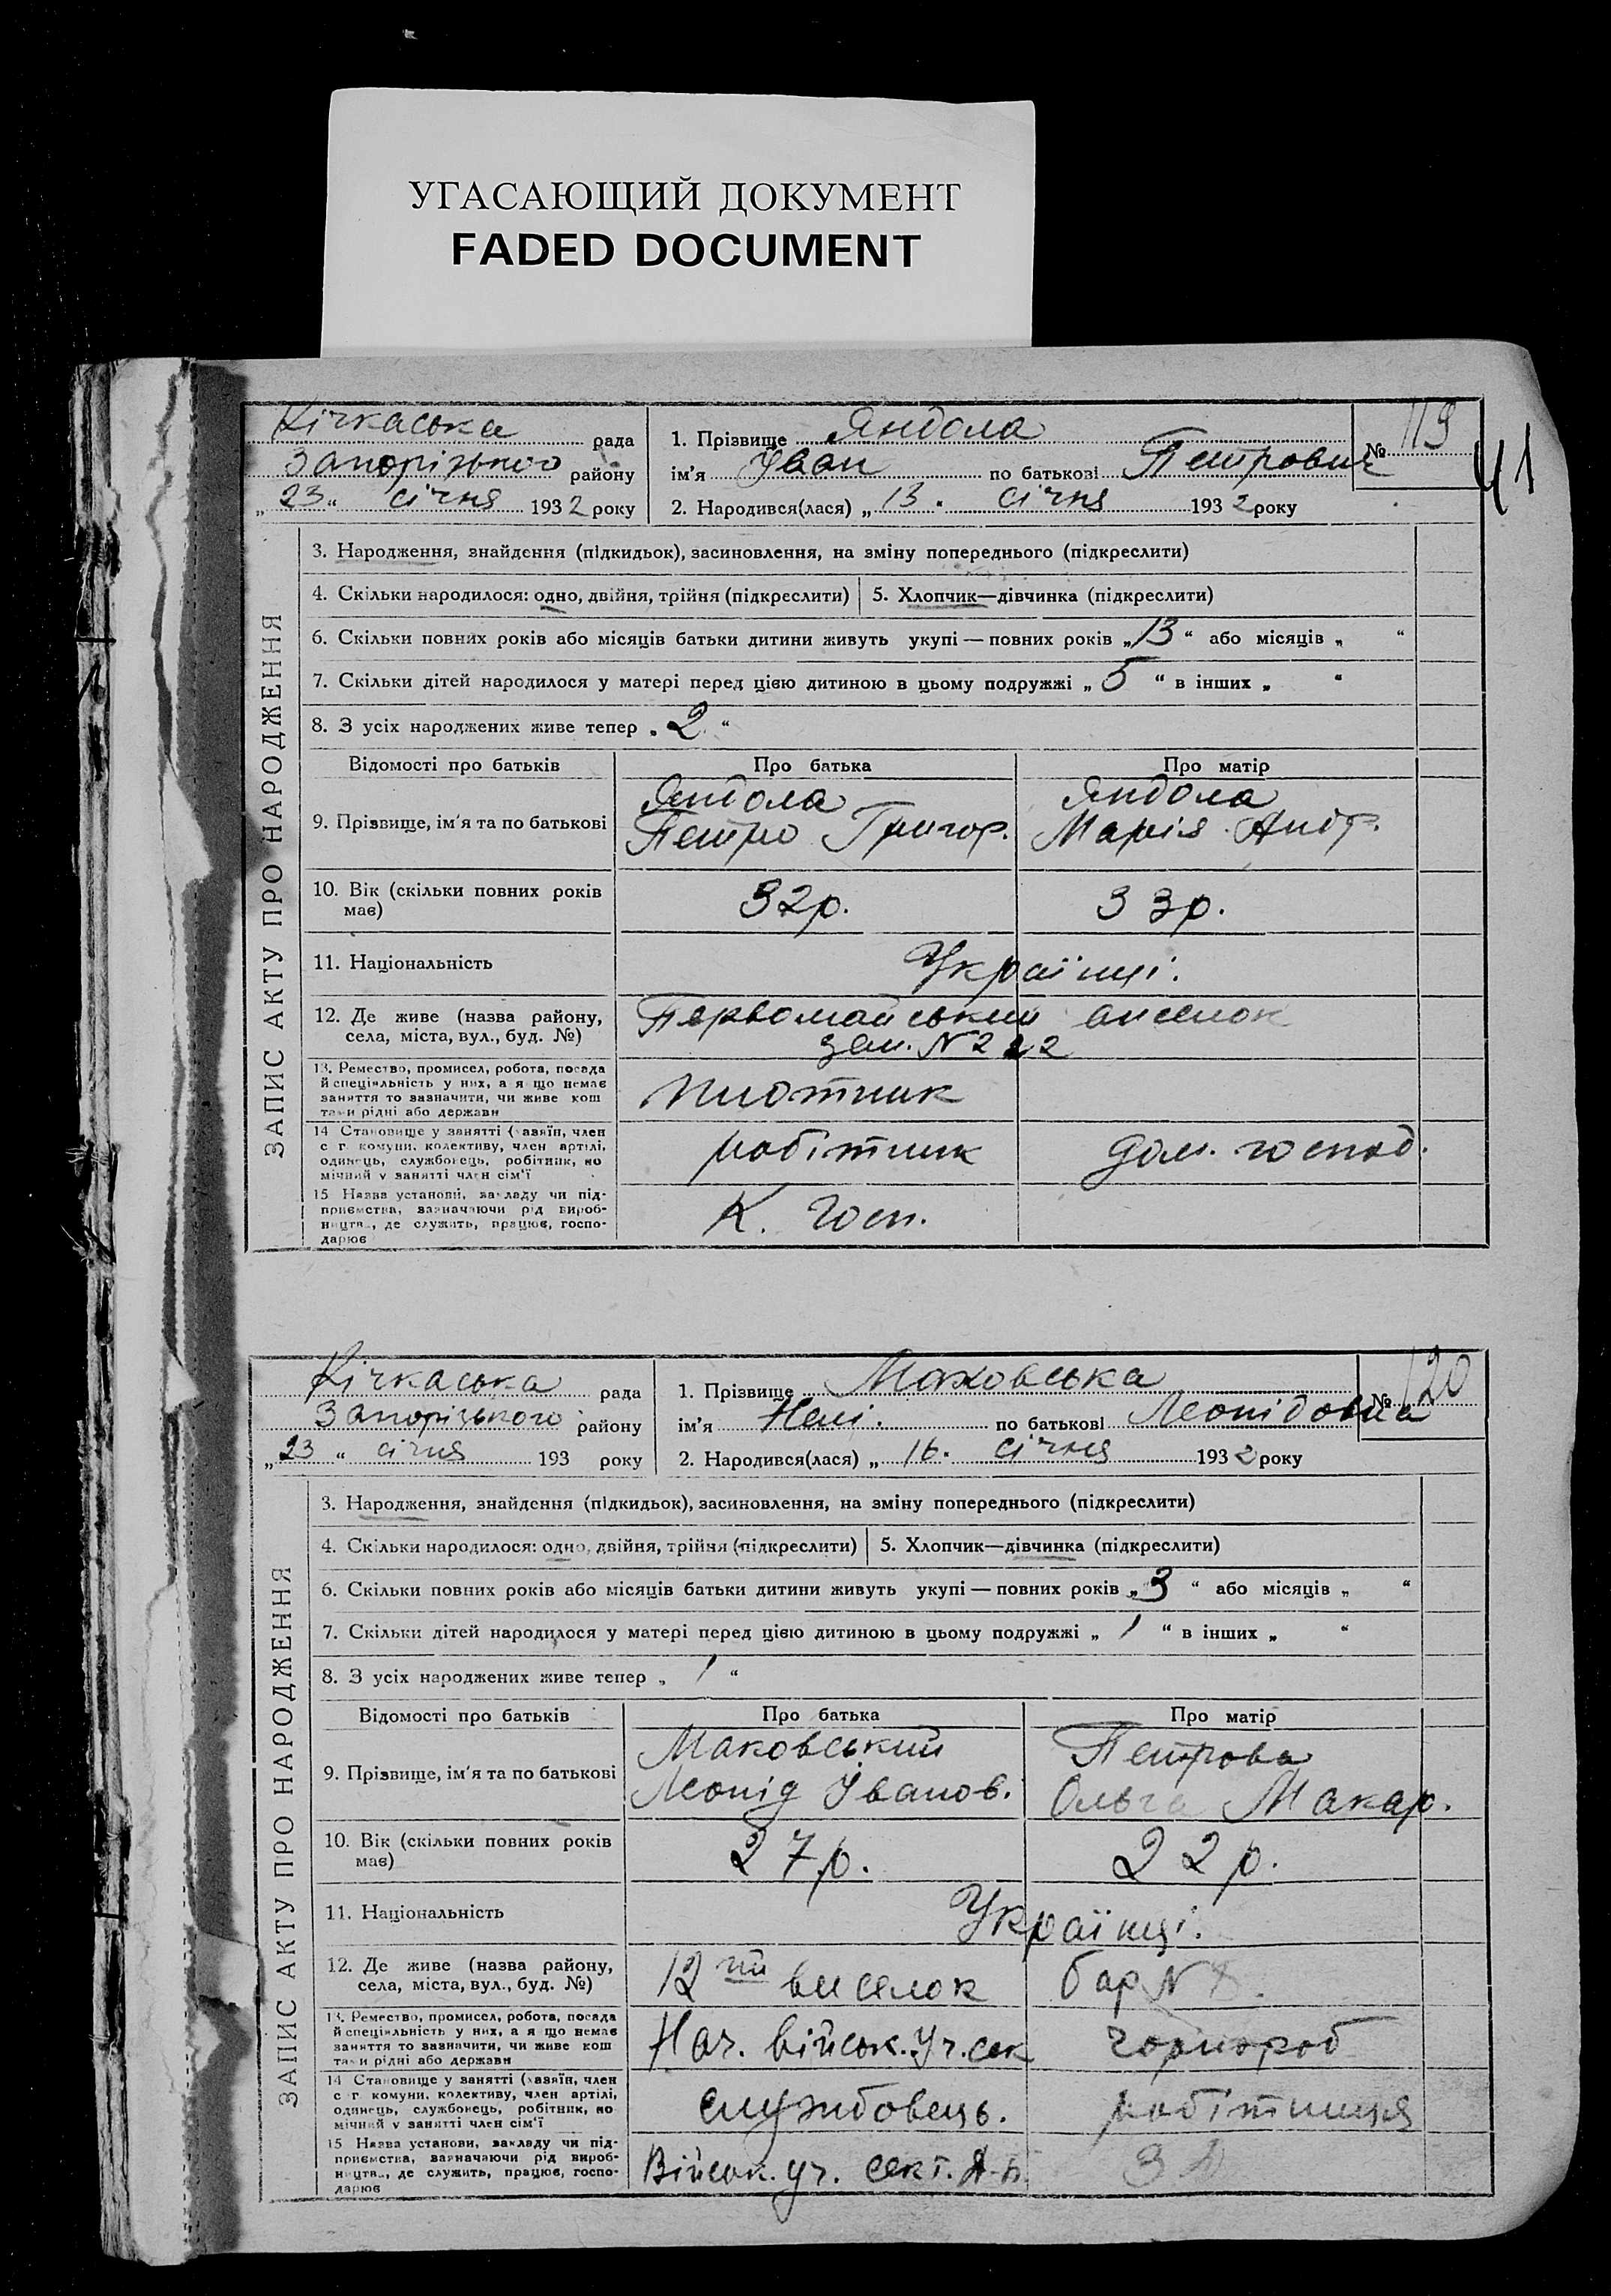 УГАСАЮЩИЙ ДОКУМЕНТ
FADED DOCUMENT
41
Кічкаська рада
Запорізького району
„ 23 “ січня 1932 року
1. Прізвище Яндола
№ 119
ім'я Іван по батькові Петрович
2. Народився(лася) „ 13 “ січня 1932 року
ЗАПИС АКТУ ПРО НАРОДЖЕННЯ
3. Народження, знайдення (підкидьок), засиновлення, на зміну попереднього (підкреслити)
4. Скільки народилося: одно, двійня, трійня (підкреслити) 5. Хлопчик—дівчинка (підкреслити)
6. Скільки повних років або місяців батьки дитини живуть укупі — повних років „ 13 “ або місяців „ “
7. Скільки дітей народилося у матері перед цією дитиною в цьому подружжі „ 5 “ в інших „ “
8. З усіх народжених живе тепер „ 2 “
Відомості про батьків Про батька Про матір
9. Прізвище, ім'я та по батькові
Яндола
Петро Григор.
Яндола
Марія Андр.
10. Вік (скільки повних років
має)
32р.
33р.
11. Національність
Українці.
12. Де живе (назва району,
села, міста, вул., буд. №)
Первомайський виселок
зем. N 222
13. Ремество, промисел, робота, посада
й спеціяльність у них, а я що немає
заняття то зазначити, чи живе кош
тами рідні або держави
плотник
14 Становище у занятті (хазяїн, член
с г комуни, колективу, член артілі,
одинець, службовець, робітник, по
мічний у занятті член сім'ї
робітник
дом. господ.
15 Назва установи, закладу чи під-
приємства, зазначаючи рід вироб-
ництва, де служить, працює, госпо-
дарює
К. Госп.
Кічкаська рада
Запорізького району
„ 23 “ січня 193 року
1. Прізвище Маковська
№ 120
ім'я Нелі. по батькові Леонідовна
2. Народився(лася) „ 16. січня 1932 року
ЗАПИС АКТУ ПРО НАРОДЖЕННЯ
3. Народження, знайдення (підкидьок), засиновлення, на зміну попереднього (підкреслити)
4. Скільки народилося: одно, двійня, трійня (підкреслити) 5. Хлопчик—дівчинка (підкреслити)
6. Скільки повних років або місяців батьки дитини живуть укупі — повних років „ 3 “ або місяців „ “
7. Скільки дітей народилося у матері перед цією дитиною в цьому подружжі „ 1 “ в інших „ “
8. З усіх народжених живе тепер „ 1 “
Відомості про батьків Про батька Про матір
9. Прізвище, ім'я та по батькові
Маковський
Леонід Іванов.
Петрова
Ольга Макар.
10. Вік (скільки повних років
має)
27р.
22р.
11. Національність
Українці.
12. Де живе (назва району,
села, міста, вул., буд. №)
12 ий виселок бар N 8.
13. Ремество, промисел, робота, посада
й спеціяльність у них, а я що немає
заняття то зазначити, чи живе кош
тами рідні або держави
Нач. військ. уч. сек
чорнороб
14 Становище у занятті (хазяїн, член
с г комуни, колективу, член артілі,
одинець, службовець, робітник, по
мічний у занятті член сім'ї
службовець.
робітниця
15 Назва установи, закладу чи під-
приємства, зазначаючи рід вироб-
ництва, де служить, працює, госпо-
дарює
Військ. уч. сект.